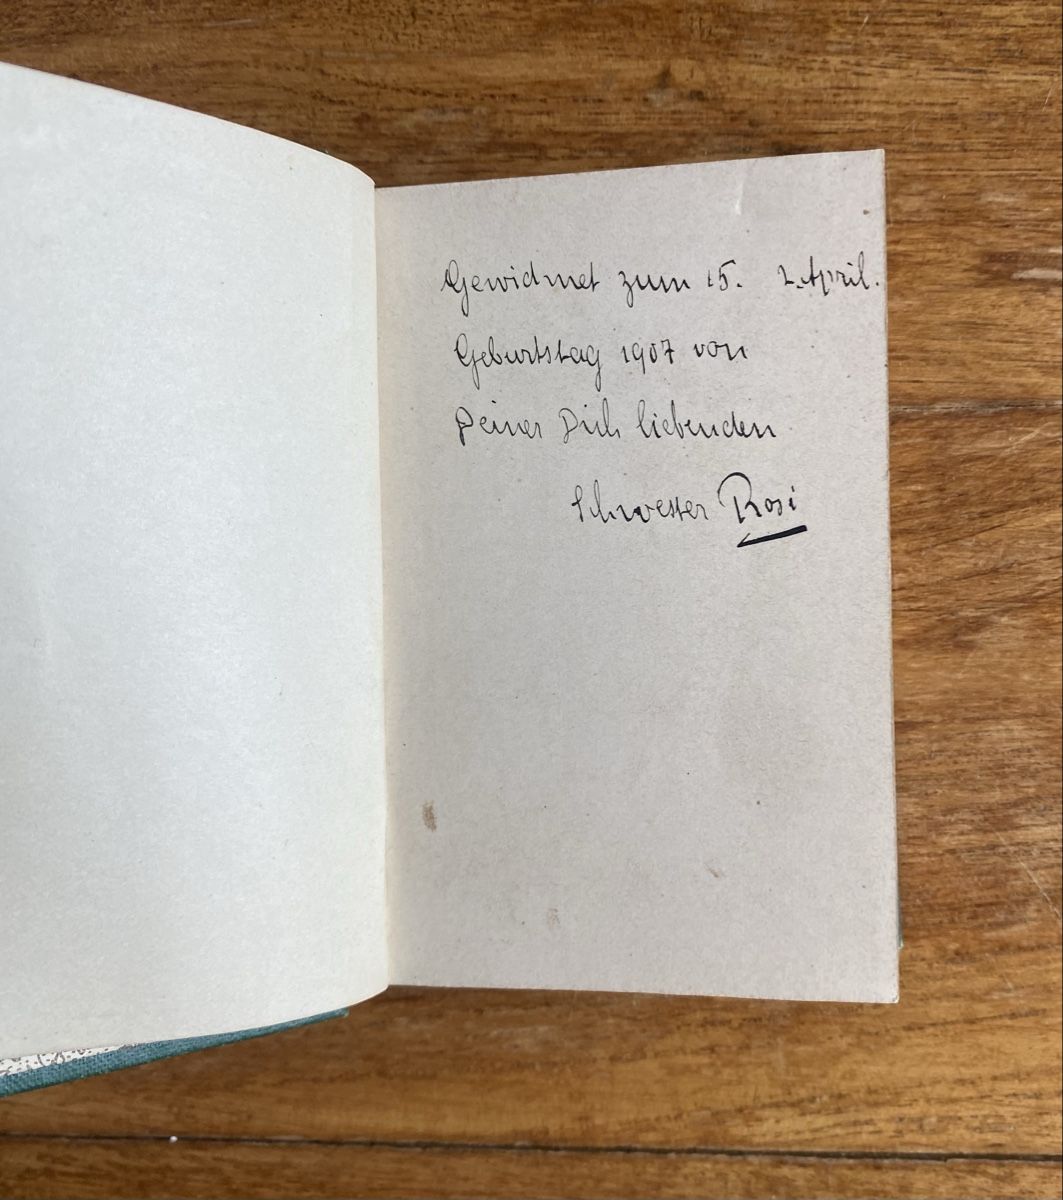 Gewidmet zum 15. 2. April.
Geburtstag 1907 von
Deiner Dich liebenden
Schwester Rosi